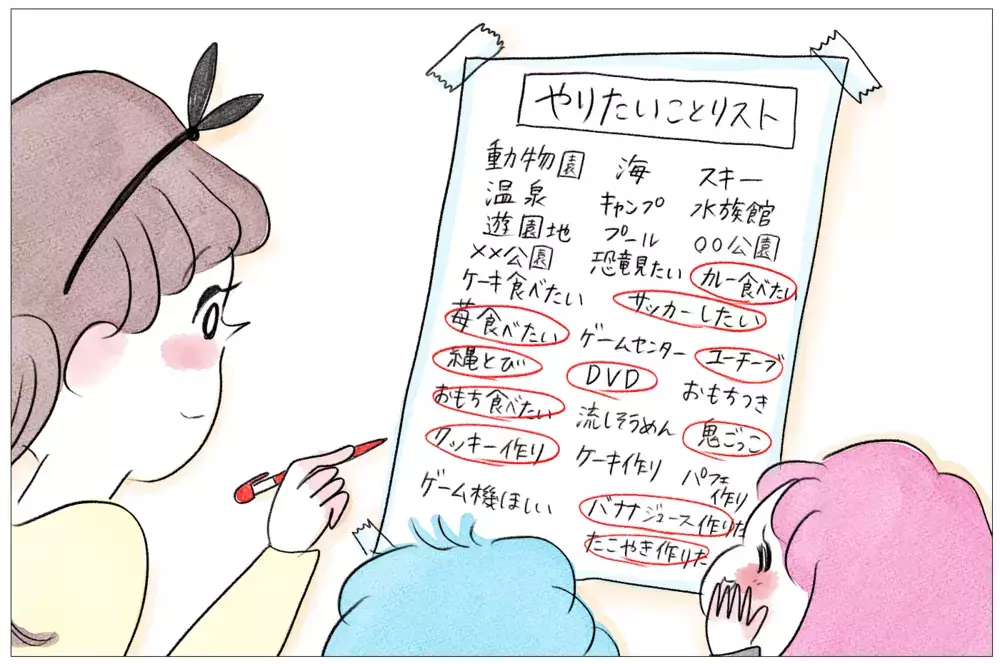 やりたいことリスト
動物園 海 スキー
温泉 キャンプ 水族館
遊園地 プール ○○公園
××公園 恐竜見たい カレー食べたい
ケーキ食べたい サッカーしたい
苺食べたい ゲームセンター ユーチーブ
縄とび DVD おもちつき
おもち食べたい 流しそうめん 鬼ごっこ
クッキー作り ケーキ作り パフェ
作り
ゲーム機ほしい バナナジュース作りた
たこやき作りた